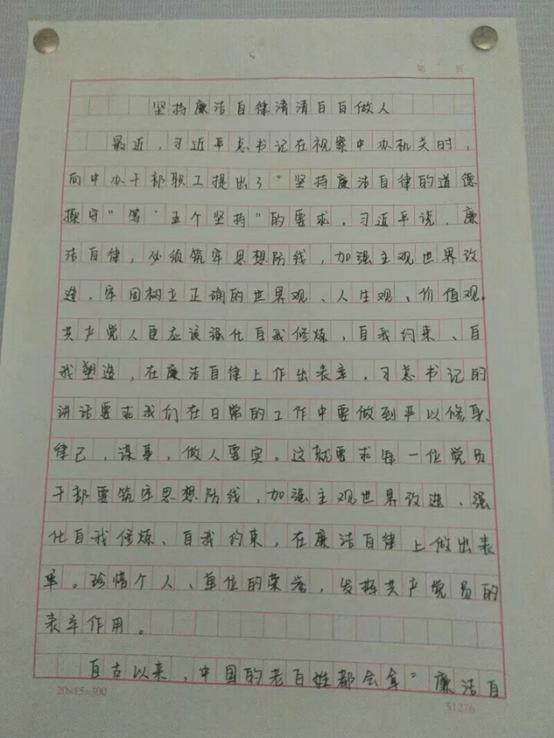 第 页
坚持廉洁自律清清白白做人
最近，习近平总书记在视察中办机关时，
向中办干部职工提出了“坚持廉洁自律的道德
操守”等“五个坚持”的要求。习近平说，廉
洁自律，必须筑牢思想防线，加强主观世界改
造，牢固树立正确的世界观、人生观、价值观。
共产党人更应该强化自我修炼，自我约束、自
我塑造，在廉洁自律上作出表率，习总书记的
讲话要求我们在日常的工作中要做到严以修身、
律己，谋事，做人要实。这就要求每一位党员
干部要筑牢思想防线，加强主观世界改造、强
化自我修炼、自我约束，在廉洁自律上做出表
率。珍惜个人、单位的荣誉，发挥共产党员的
表率作用。
自古以来，中国的老百姓都会拿“廉洁自
20×15=300
51276